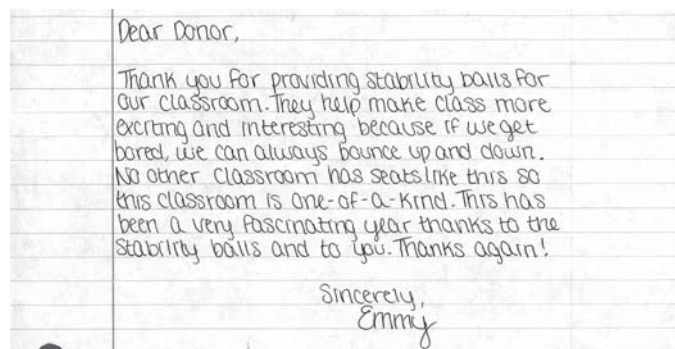 Dear Donor,
Thank you for providing stability balls for
our classroom. They help make class more
exciting and interesting because if we get
bored, we can always bounce up and down.
No other classroom has seats like this so
this classroom is one-of-a-kind. This has
been a very fascinating year thanks to the
stability balls and to you. Thanks again!
Sincerely,
Emmy